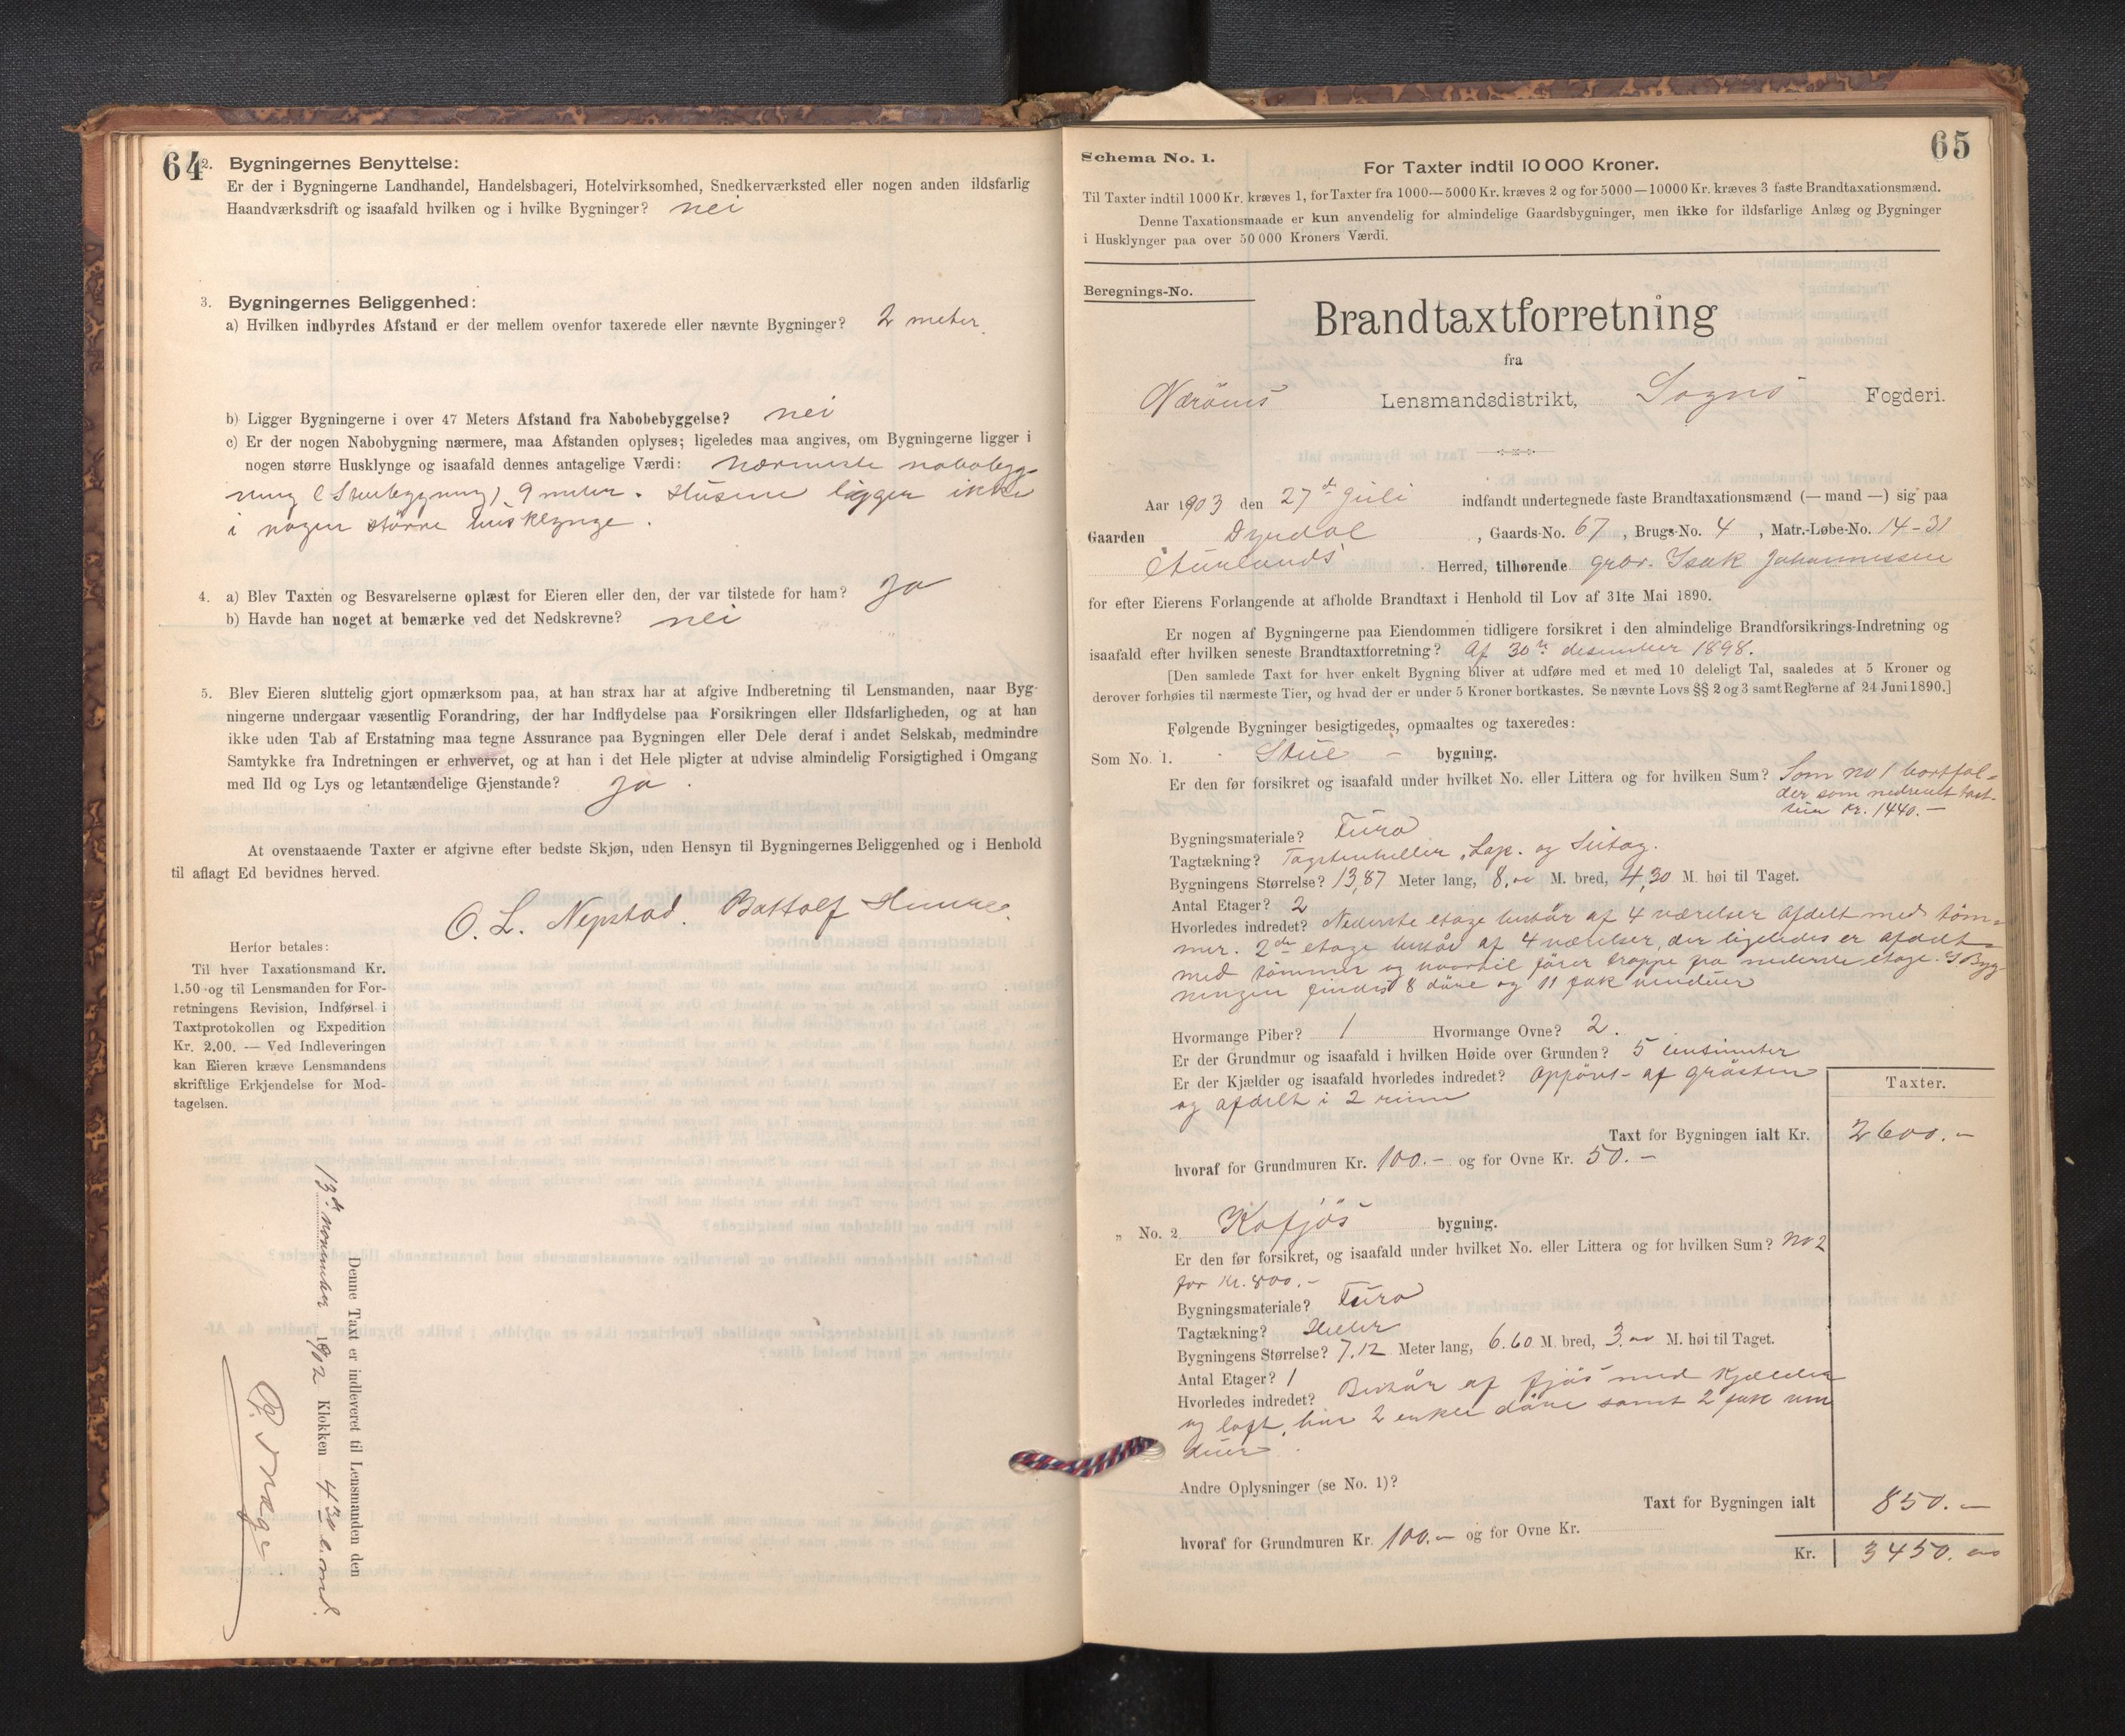 64
2. Bygningernes Benyttelse:
Er der i Bygningerne Landhandel, Handelsbageri, Hotelvirksomhed, Snedkerværksted eller nogen anden ildsfarlig
Haandværksdrift og isaafald hvilken og i hvilke Bygninger? nei
3. Bygningernes Beliggenhed:
a) Hvilken indbyrdes Afstand er der mellem ovenfor taxerede eller nævnte Bygninger? 2 meter.
b) Ligger Bygningerne i over 47 Meters Afstand fra Nabobebyggelse? nei
c) Er der nogen Nabobygning nærmere, maa Afstanden oplyses; ligeledes maa angives, om Bygningerne ligger i
nogen større Husklynge og isaafald dennes antagelige Værdi: nærmeste nabobygg-
ning (Stuebygning) 9 meter. Husene ligger ikke
i nogen større husklynge.
4. a) Blev Taxten og Besvarelserne oplæst for Eieren eller den, der var tilstede for ham? Ja
b) Havde han noget at bemærke ved det Nedskrevne? nei
5. Blev Eieren sluttelig gjort opmærksom paa, at han strax har at afgive Indberetning til Lensmanden, naar Byg-
ningerne undergaar væsentlig Forandring, der har Indflydelse paa Forsikringen eller Ildsfarligheden, og at han
ikke uden Tab af Erstatning maa tegne Assurance paa Bygningen eller Dele deraf i andet Selskab, medmindre
Samtykke fra Indretningen er erhvervet, og at han i det Hele pligter at udvise almindelig Forsigtighed i Omgang
med Ild og Lys og letantændelige Gjenstande? Ja.
At ovenstaaende Taxter er afgivne efter bedste Skjøn, uden Hensyn til Bygningernes Beliggenhed og i Henhold
til aflagt Ed bevidnes herved.
O. L. Nepstad. Battolf
Herfor betales:
Til hver Taxationsmand Kr.
1.50 og til Lensmanden for For-
retningens Revision, Indførsel i
Taxtprotokollen og Expedition
Kr. 2.00. — Ved Indleveringen
kan Eieren kræve Lensmandens
skriftlige Erkjendelse for Mod-
tagelsen.
Denne Taxt er indleveret til Lensmanden den
13de november 1902 Klokken 4 30 e.md.
65
Schema No. 1.
For Taxter indtil 10 000 Kroner.
Til Taxter indtil 1000 Kr. kræves 1, for Taxter fra 1000—5000 Kr. kræves 2 og for 5000—10000 Kr. kræves 3 faste Brandtaxationsmænd.
Denne Taxationsmaade er kun anvendelig for almindelige Gaardsbygninger, men ikke for ildsfarlige Anlæg og Bygninger
i Husklynger paa over 50 000 Kroners Værdi.
Beregnings-No.
Brandtaxtforretning
fra
Nærøens Lensmandsdistrikt, Sogns Fogderi.
Aar 1903 den 27de Juli indfandt undertegnede faste Brandtaxationsmænd (— mand —) sig paa
Gaarden Dyrdal, Gaards-No. 67, Brugs-No. 4, Matr.-Løbe-No. 14-31
Aurlands Herred, tilhørende grdr. Isak Johannessen
for efter Eierens Forlangende at afholde Brandtaxt i Henhold til Lov af 31te Mai 1890.
Er nogen af Bygningerne paa Eiendommen tidligere forsikret i den almindelige Brandforsikrings-Indretning og
isaafald efter hvilken seneste Brandtaxtforretning? Af 30te desember 1898.
[Den samlede Taxt for hver enkelt Bygning bliver at udføre med et med 10 deleligt Tal, saaledes at 5 Kroner og
derover forhøies til nærmeste Tier, og hvad der er under 5 Kroner bortkastes. Se nævnte Lovs §§ 2 og 3 samt Reglerne af 24 Juni 1890.]
Følgende Bygninger besigtigedes, opmaaltes og taxeredes:
Som No. 1. Stue- bygning.
Er den før forsikret og isaafald under hvilket No. eller Littera og for hvilken Sum? Som no 1 bortfal-
der som nedrevet taxt-
Kr. 1440.—
Bygningsmateriale? Furu
Tagtækning? og
Bygningens Størrelse? 13,87 Meter lang, 8,00 M. bred, 4,30 M. høi til Taget.
Antal Etager? 2
Hvorledes indredet? Nederste etage består af 4 værelser afdelt med töm-
mer. 2den etage består af 4 værelser, der ligeledes er afdelt
med tömmer og hvortil förer trappe fra nederste etage. I Byg-
ningen findes 8 döre og 11 fak vinduer
Hvormange Piber? 1 Hvormange Ovne? 2.
Er der Grundmur og isaafald i hvilken Høide over Grunden? 5 centimeter
Er der Kjælder og isaafald hvorledes indredet? Oppört af gråsten
og afdelt i 2 rum
Taxter.
Taxt for Bygningen ialt Kr. 2600.—
hvoraf for Grundmuren Kr. 100.— og for Ovne Kr. 50.—
„ No. 2. Kofjös bygning.
Er den før forsikret, og isaafald under hvilket No. eller Littera og for hvilken Sum? No 2
for Kr. 800.—
Bygningsmateriale? Furu
Tagtækning? Heller
Bygningens Størrelse? 7.12 Meter lang, 6.60 M. bred, 3.00 M. høi til Taget.
Antal Etager? 1
Hvorledes indredet? Består af fjös med Kjælder
og loft, har 2 enkle döre samt 2 fak vin
duer.
Andre Oplysninger (se No. 1)?
Taxt for Bygningen ialt 850.—
hvoraf for Grundmuren Kr. 100.— og for Ovne Kr.
Kr. 3450.00